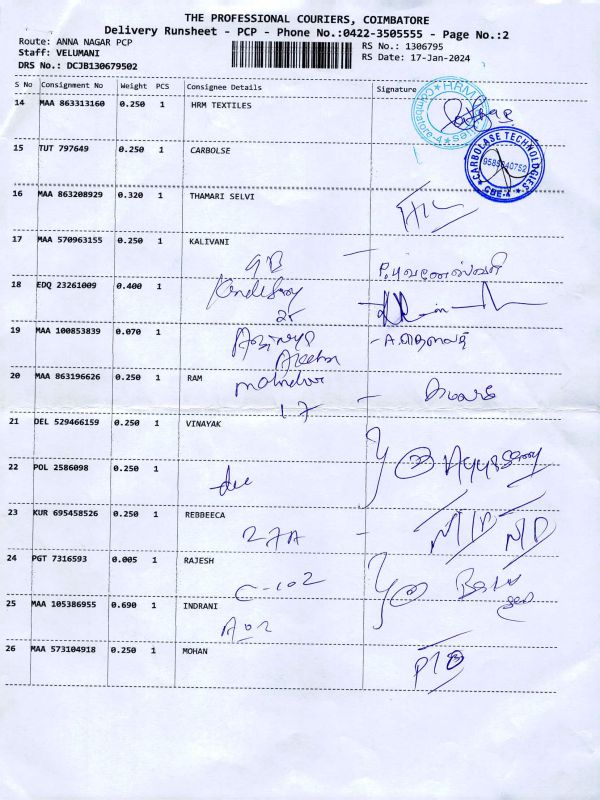 THE PROFESSIONAL COURIERS, COIMBATORE
Delivery Runsheet - PCP - Phone No.:0422-3505555 - Page No.:2
Route: ANNA NAGAR PCP
RS No.: 1306795
Staff: VELUMANI
RS Date: 17-Jan-2024
DRS No.: DCJB130679502
S No Consignment No Weight PCS Consignee Details Signature
14 MAA 863313160 0.250 1 HRM TEXTILES
HRM
Coimbatore-4
15 TUT 797649 0.250 1 CARBOLSE
CARBOLASE TECHNOLOGIES
CBE-4
16 MAA 863208929 0.320 1 THAMARI SELVI
17 MAA 570963155 0.250 1 KALIVANI
9B
P.புவனேஸ்வரி
18 EDQ 23261009 0.400 1
19 MAA 100853839 0.070 1
20 MAA 863196626 0.250 1 RAM
17
21 DEL 529466159 0.250 1 VINAYAK
22 POL 2586098 0.250 1
23 KUR 695458526 0.250 1 REBBEECA
27A
N/D N/D
24 PGT 7316593 0.005 1 RAJESH
C-102
25 MAA 105386955 0.690 1 INDRANI
A02
26 MAA 573104918 0.250 1 MOHAN